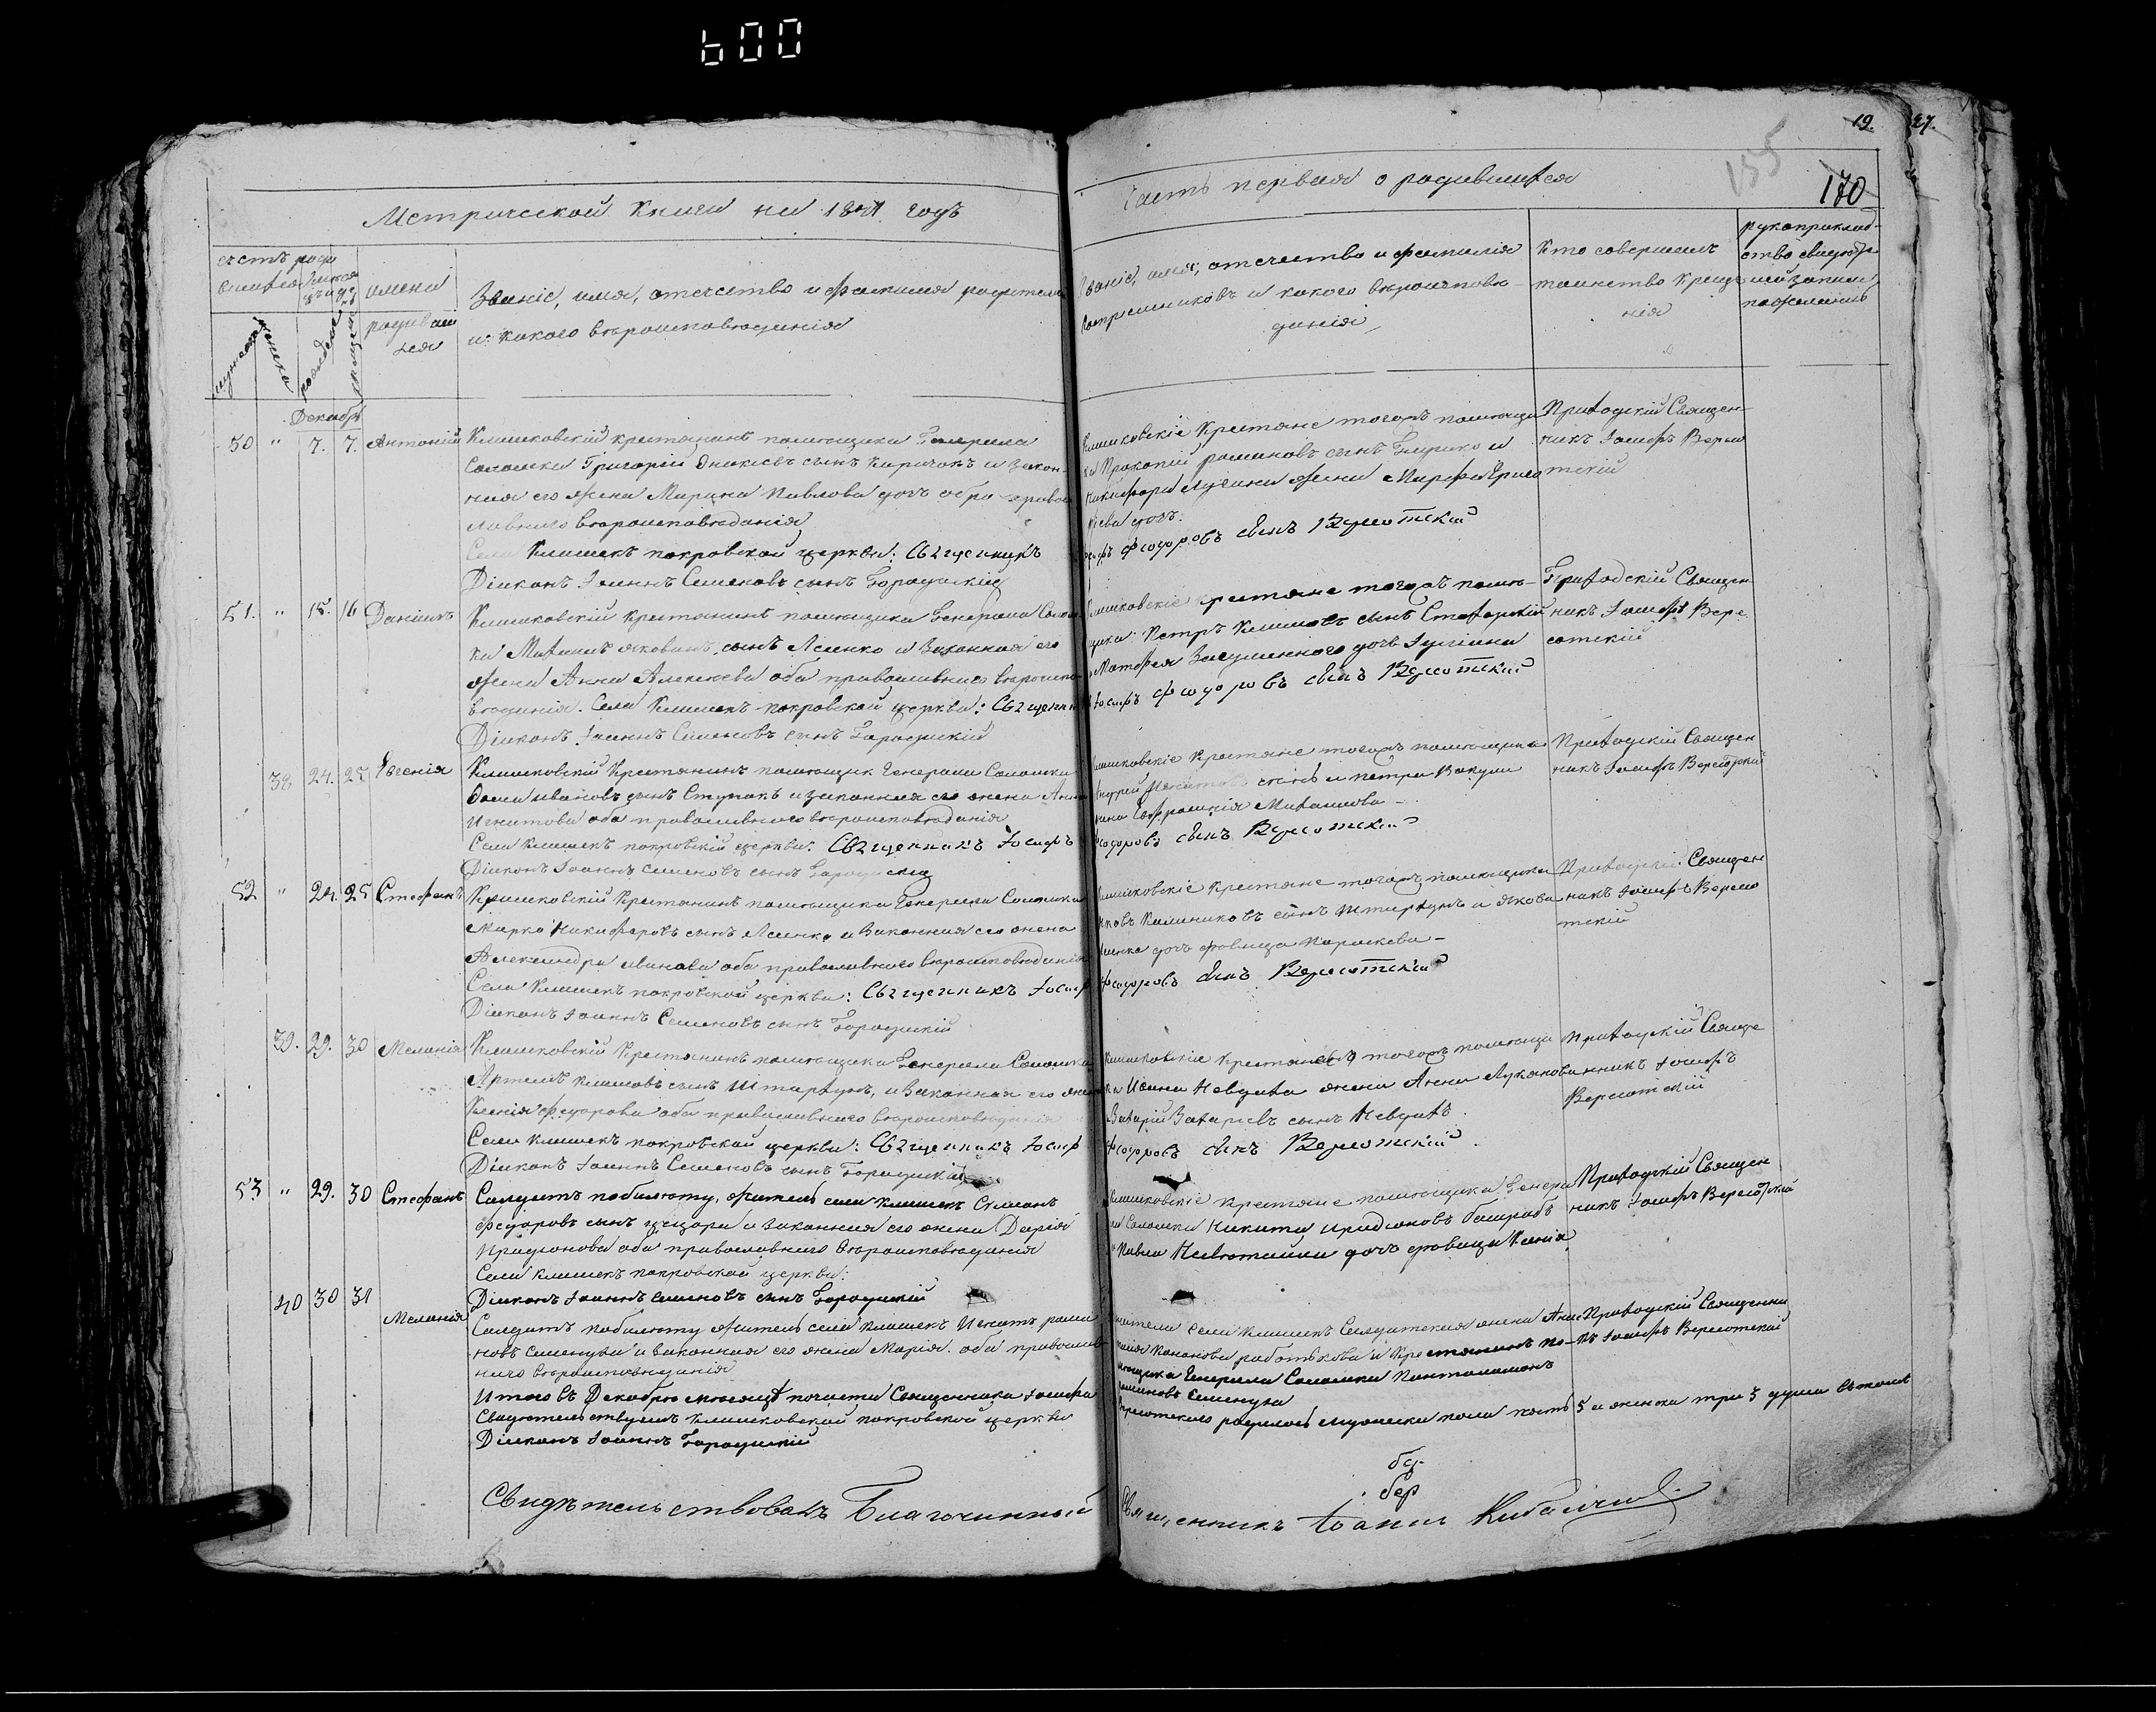 600
19.
27.
155
170
Метрической Книги на 1841 годъ
Часть первая о родившихся
счетъ роди
вшихся
мужеска
женска
рожденія
крещенія
имена
родивших
ся
Званіе, имя, отечество и фамилія родителей
и какого вероисповеданія
Званіе, имя, отечество и фамилія
воспріемниковъ и какого вероисповѣ-
данія
Кто совершалъ
таинство креще
нія
рукоприклад-
ство свидѣте
лей записи
по желанію
Декабрь
50 " 7. 7. Антоній
Клишковскій крестьянинъ помѣщика Генерала
Соломки Григорій сынъ Киричокъ и закон-
ная его жена Марина Павлова дочь оба православ
славнаго вѣроисповѣданія
Села Клишекъ покровской церкви: Священникъ
Діаконъ Іоаннъ Семеновъ сынъ Городискій
Клишковскіе крестьяне тогожъ помѣщи
ка Прокопій романовъ сынъ и
Никифора жена Марфа Григо
ріева дочь.
Іосифъ Феодоровъ сынъ Вересотскій
Приходскій Священ-
никъ Іосифъ Вересо
тскій
51. " 15. 16 Даніилъ
Клишковскій крестьянинъ помѣщика Генерала Солом
ки Михаилъ Яковавъ сынъ Ясенко и Законная его
жена Анна Алексіева оба православнаго вѣроиспо
вѣданія. Села Клишекъ покровской церкви: Священникъ
Діаконъ Іоаннъ Семеновъ сынъ Городискій
Клишковскіе крестьяне тогожъ помѣ-
щика Петръ Климовъ сынъ
Матфея дочь Іуліана
Іосифъ Феодоровъ сынъ Вересотскій
Приходскій Священ
никъ Іосифъ Вере
сотскій
38 24. 25 Евгенія
Клишковскій Крестьянинъ помѣщик Генерала Соломки
Фома ивановъ сынъ Ступакъ и законная его жена Анна
Игнатова оба православнаго вѣроисповѣданія
Села Клишекъ покровскій церкви: Священникъ Іосифъ
Діаконъ Іоаннъ Семеновъ сынъ Городискій
Клишковскіе Крестьяне тогожъ помѣщика
Андрей сынъ и петра Вакули
жена Евфросинія Михаилова -
Феодоровъ сынъ Вересотскій
Приходскій Священ
никъ Іосифъ Вересотскій
52 " 24. 25 Стефанъ
Клишковскій Крестьянинъ помѣщика Генерала Соломки
Марко Никифоровъ сынъ Ясенко и Законная его жена
Александра иванова оба православнаго вѣроисповѣданія
Села Клишекъ покровской церкви: Священникъ Іосиф
Діаконъ Іоаннъ Семеновъ сынъ Городискій
Клишковскіе Крестьяне тогожъ помѣщика
Яковъ Калиниковъ сынъ Штырхунъ и Якова
Ясенка дочь дѣвица Параскева -
Феодоровъ сынъ Вересотскій
Приходскій Священ
никъ Іосифъ Вересо
тскій
39. 29. 30 Меланія
Клишковскій Крестьянинъ помѣщика Генерала Соломки
Артемъ Климовъ сынъ Штырхунъ, и Законная его жена
Ксенія Федорова оба православнаго вѣроисповѣданія
Села Клишекъ покровской церкви: Священникъ Іосиф
Діаконъ Іоаннъ Семеновъ сынъ Городискій
Клишковскіе крестьяне тогожъ помѣщи
ка Ивана Невдаха жена Анна Луканова
Захарій Захаріевъ сынъ Невдахъ.
Феодоровъ сынъ Вересотскій
Приходскій Свяще
нникъ Іосифъ
Вересотскій
53 " 29. 30 Стефанъ
Солдатъ побилету, житель села клишекъ Симонъ
Федоровъ сынъ и законная его жена Дарія
Иридіонова оба православнаго вѣроисповѣданія
Села клишекъ покровской церкви:
Діаконъ Іоаннъ Семеновъ сынъ Городискій
Клишковскіе крестьяне помѣщика Генера
ла Соломки Никита иридіоновъ
Павла дочь дѣвица Ксенія
Приходскій Священ
никъ Іосифъ Вересотскій
40 30 31 Меланія
Солдатъ побилету житель села клишекъ Игнатъ рома
новъ Семенуха и законная его жена Марія. оба православ
наго вѣроисповѣданія
жители села клишекъ Солдатская жена Анас
тасія Кононова и крестьянинъ по-
мѣщика Генерала Соломки Пантелимонъ
романовъ Семенуха
Приходскій Священни
къ Іосифъ Вересотскій
Итого въ Декабрѣ мѣсяцѣ почасти Священника Іосифа
Вересотскаго родилось мужеска пола пять 5 и женска три 3 души
Свидѣтельствуемъ клишковской покровской церкви
Діаконъ Іоаннъ Городискій
Свидѣтельствовалъ Благочинный
Священникъ Іоаннъ Кибальчичъ.